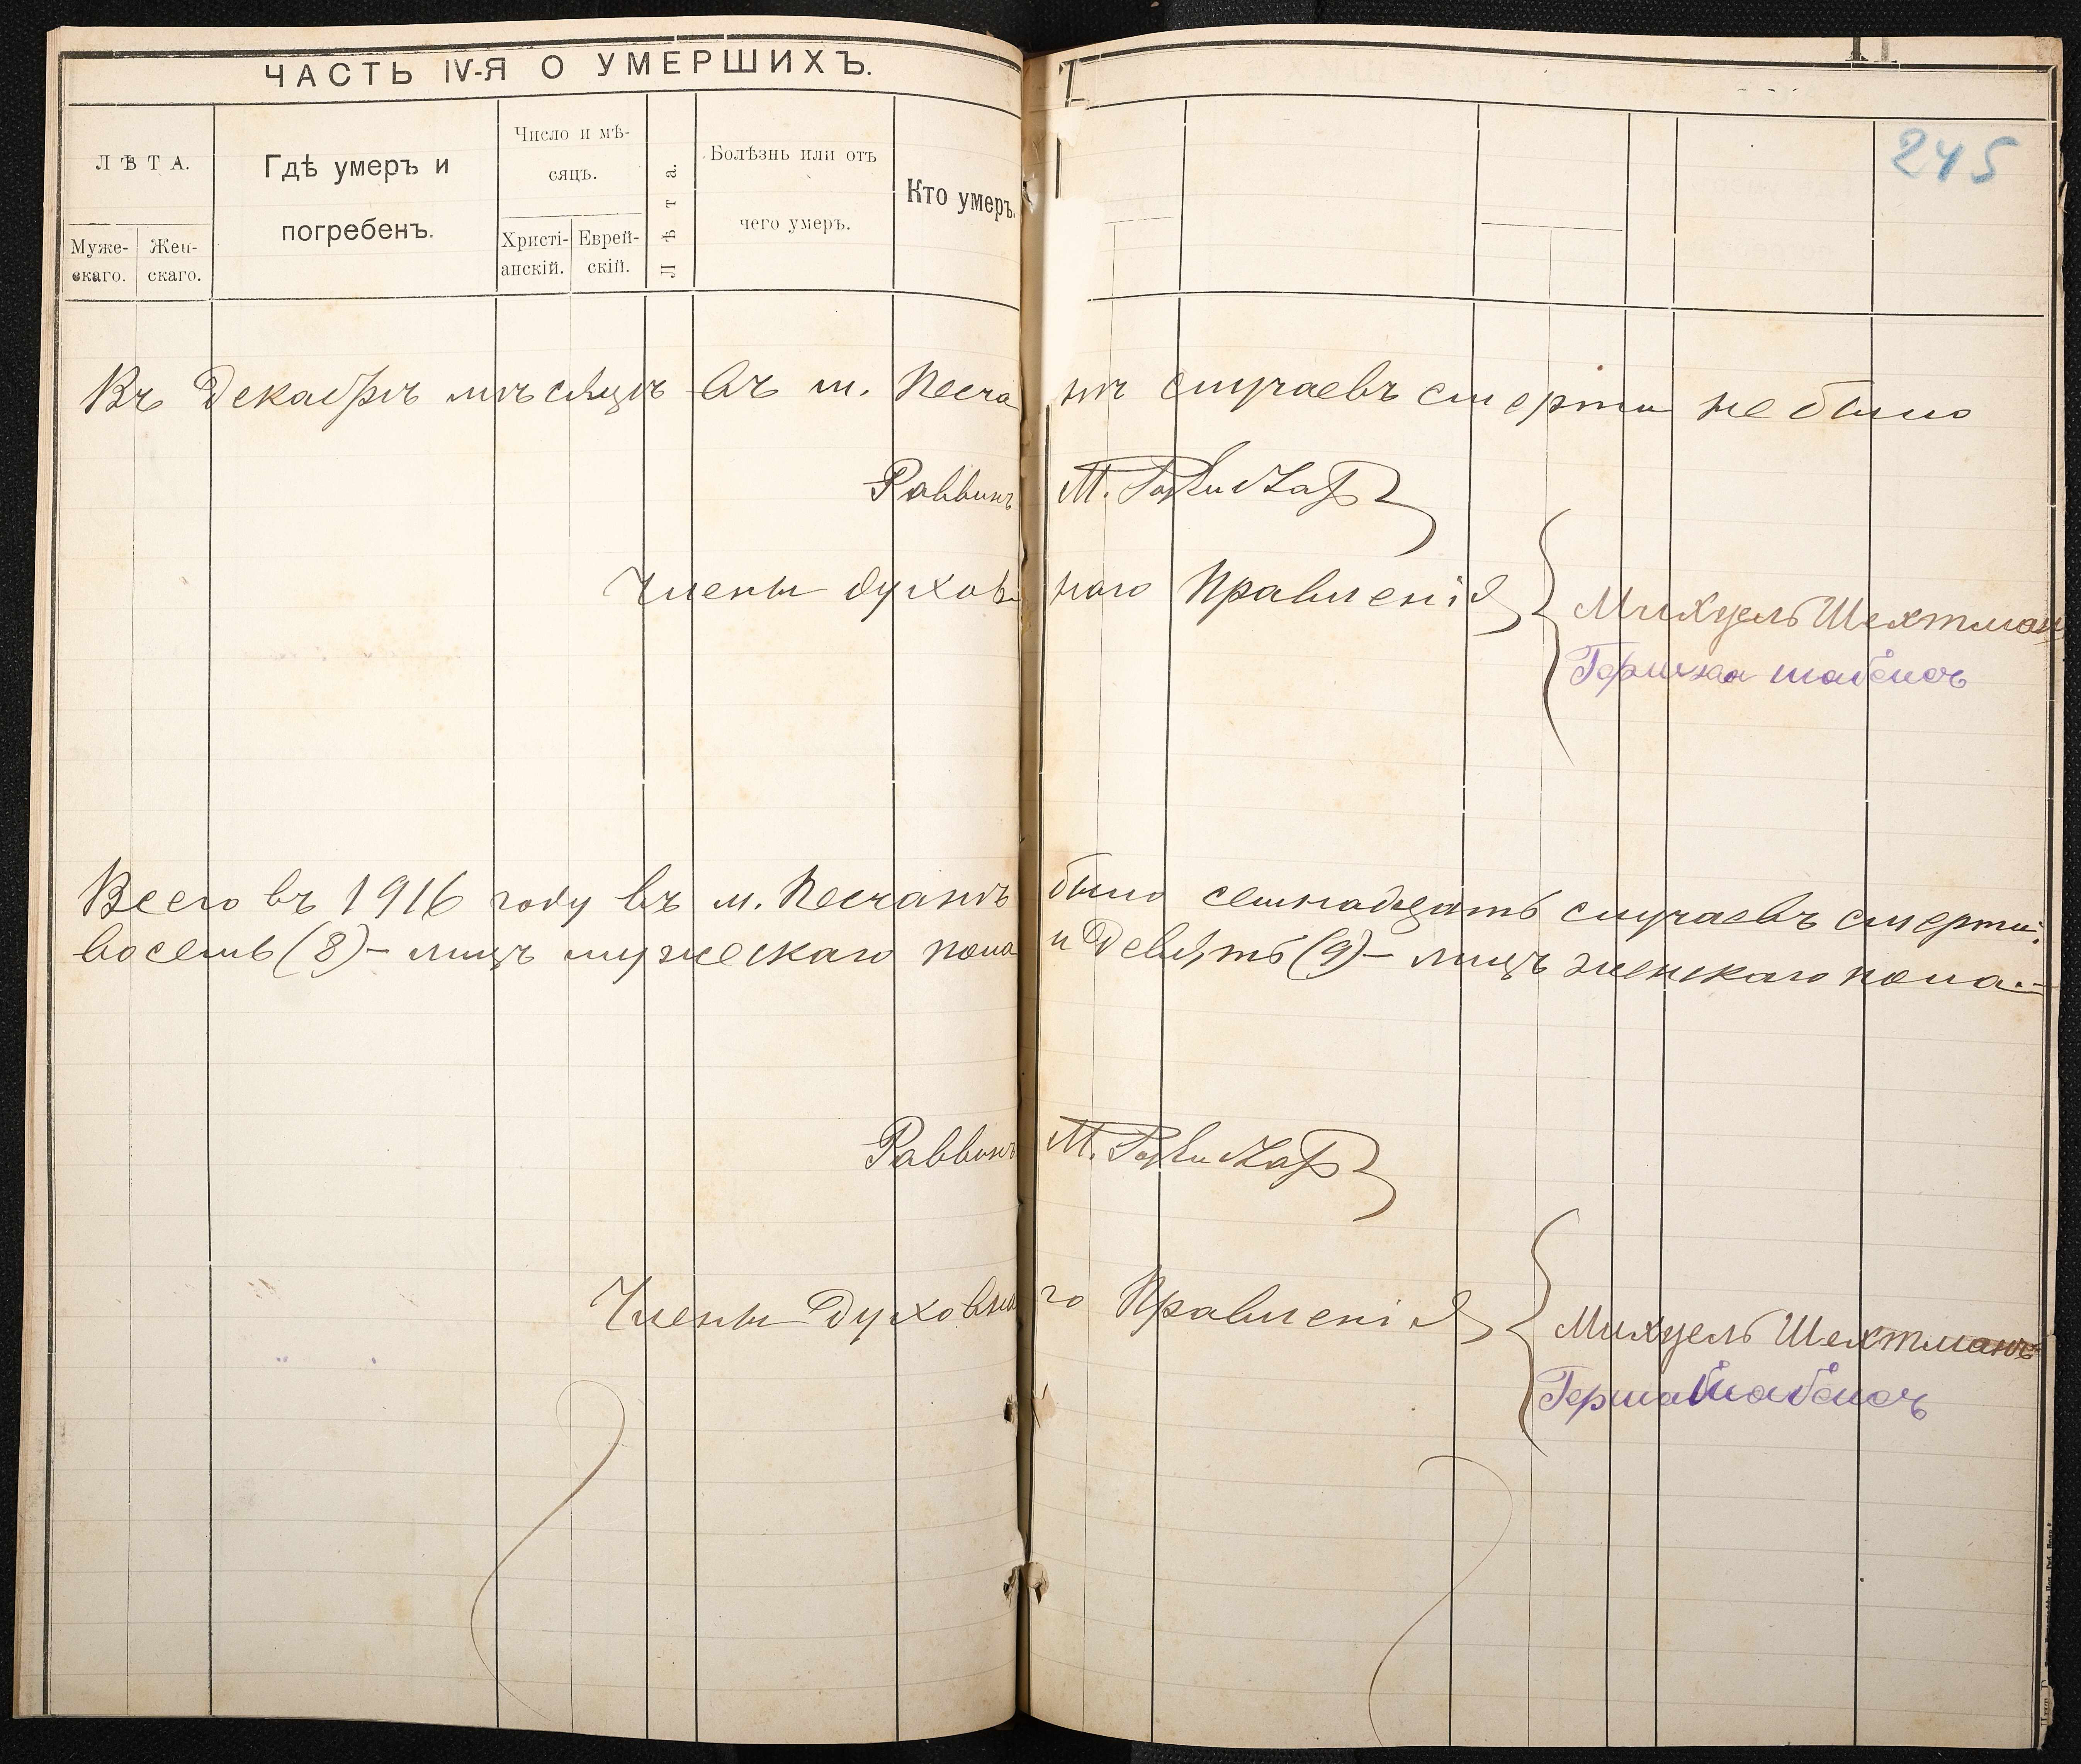 ЧАСТЬ IV-Я О УМЕРШИХЪ.
245
ЛѢТА.
Муже-
скаго.
Жен-
скаго.
Гдѣ умеръ и
погребенъ.
Число и мѣ-
сяцъ.
Христі-
анскій.
Еврей-
скій.
Лѣта.
Болѣзнь или отъ
чего умеръ.
Кто умеръ.
Въ Декабрѣ мѣсяцѣ въ м. Песчанѣ случаевъ смерти не было
Раввинъ М.
Члены духовнаго Правленія
Михуель Шехтман
Гершка
Всего въ 1916 году въ м. Песчанѣ было семнадцать случаевъ смерти:
восемь (8) – лицъ мужескаго пола и Девять (9) – лицъ женскаго пола. –
Раввинъ М.
Члены Духовнаго Правленія
Михуель Шехтманъ
Герша